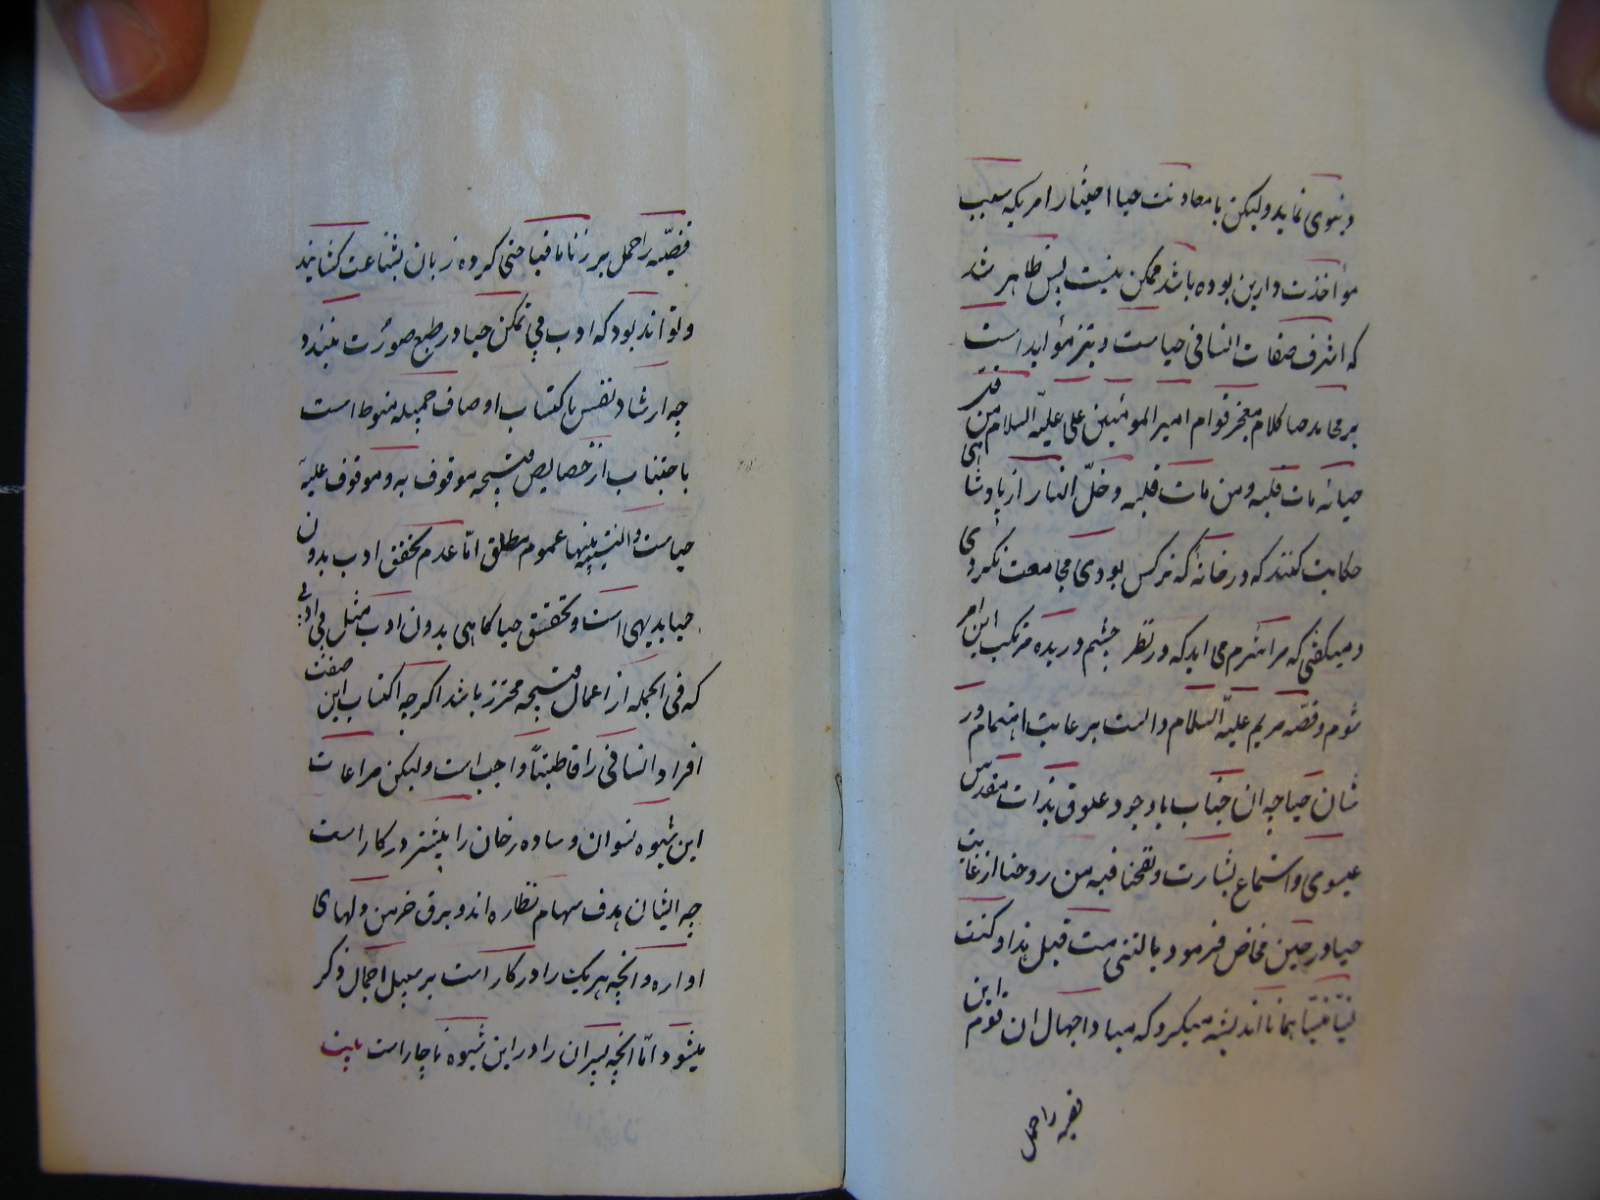 دنیوی نماید ولیکن با معاونت حیا اختیار امریکه سبب
مؤاخذت دارین بوده باشد ممکن نیست پس ظاهر شد
که اشرف صفات انسانی حیاست و نیز مؤید است
بر محامد حیا کلام معجز قوام امیر المومنین علی علیه السلام من قلّ
حیائه مات قلبه و من مات قلبه دخل النار از پادشاهی
حکایت کنند که در خانهٔ که نرکس بودی مجامعت نکردی
و میکفتی که مرا شرم می اید که در نظر چشم دریده مرتکب این امر
شوم و قصّه مریم علیه السلام دالست بر رعایت اهتمام در
شان حیا چه ان جناب با وجود علوق بذات مقدس
عیسوی و استماع بشارت و نفخنا فیه من روحنا از غایت
حیا در حین مخاض فرمود یا لتنی مت قبل هذا و کنت
نسیاً منسیّا همانا اندیشه میکرد که مبادا جهال ان قوم این
قضیه را حمل
قضیّه را حمل بر زنا نا قباحتی کرده زبان بشناعت کشایند
و تواند بود که ادب می تمکن حیا در طبع صورت نبندد
چه ارشاد نفس باکتساب اوصاف جمیله منوط است
باجتناب از خصایص قبیحه موقوف به و موقوف علیه
حیاست و النسبة بینهما عموم مطلق امّا عدم تحقق ادب بدون
حیا بدیهی است و تحقق حیا کاهی بدون ادب مثل بی ادبی
که فی الجمله از اعمال قبیحه محترز باشد اکرچه اکتساب این صفت
افراد انسانی را قاطبتاً واجب است ولیکن مراعات
این شیوه نسوان و ساده رخان را بیشتر در کار است
چه ایشان هدف سهام نظاره اند و برق خرمن دلهای
اواره و انچه هر یک را در کار است بر سبیل اجمال ذکر
میشود امّا انچه پسران را در این شیوه ناچار است